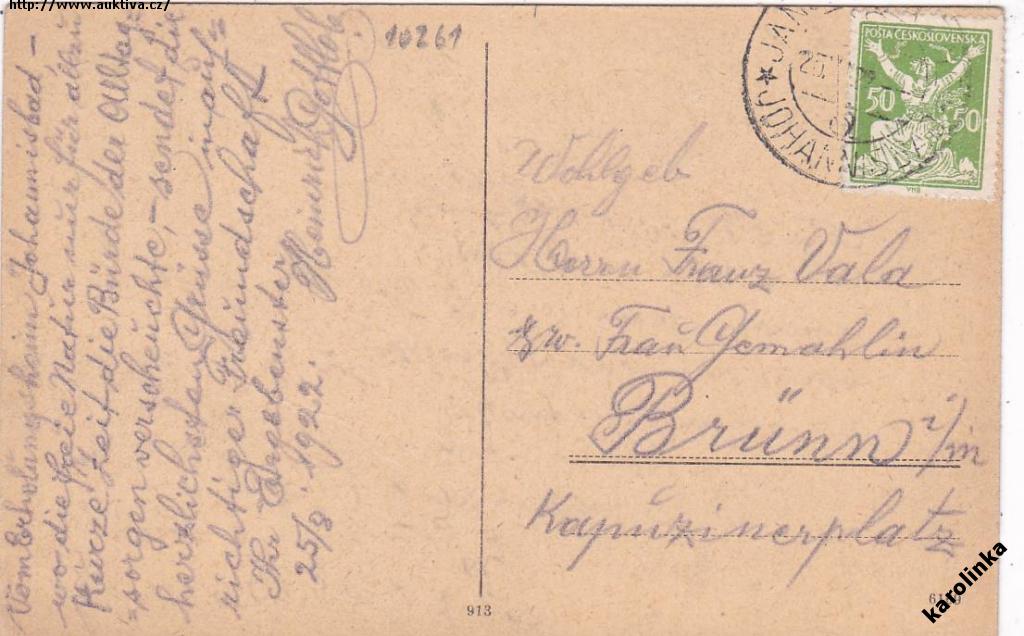 http://www.auktiva.cz/
10261
Vom Erholungsheim Johannisbad -
wo die freie Natur nur für allzu
kurze Zeit die Bürde der Alltag=
=sorgen verscheuchte, - sendet die
herzlichsten Grüsse in auf=
richtiger Freundschaft
Ihr Ergebenster
25/8. 1922. Heinrich Gottlob
JOHANNISBAD
POŠTA ČESKOSLOVENSKÁ
50 50
Wohlgeb
Herrn Franz Vala
zw. Frau Gemahlin
Brünn i/m
Kapuzinerplatz
913
karolinka